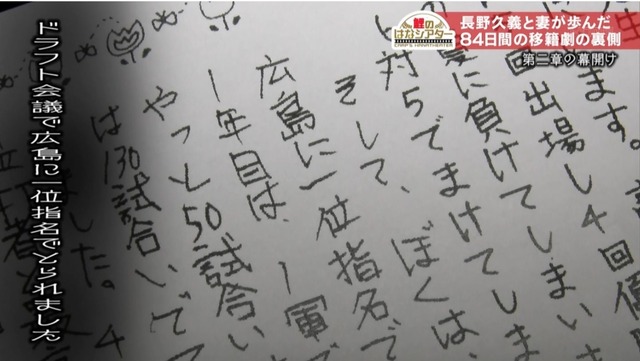 鯉の
はなシアター
CARP'S HANATHEATER
長野久義と妻が歩んだ
84日間の移籍劇の裏側
第二章の幕開け
ドラフト会議で広島に一位指名でとられました
ます。
回出場し4回優
に負けてしまい
対5でまけてしま
そして、ぼくは、
広島に一位指名で
1年目は、一軍
やっと50試合い
は130試合いで
ました。4